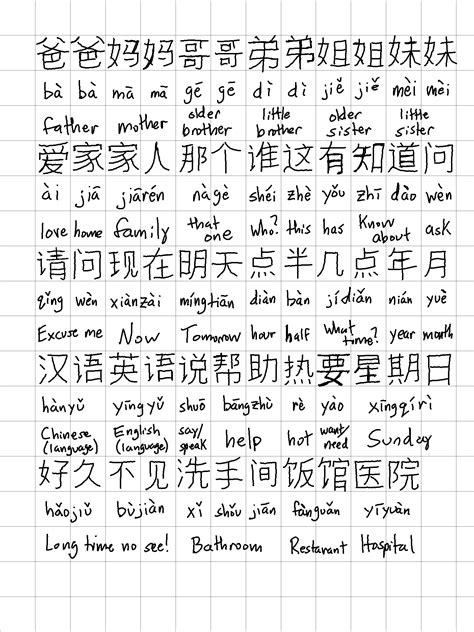 爸爸妈妈哥哥弟弟姐姐妹妹
bà bà mā mā gē gē dì dì jiě jiě mèi mèi
father mother older brother little brother older sister little sister
爱家家人那个谁这有知道问
ài jiā jiārén nàgè shéi zhè yǒu zhī dào wèn
love home family that one who? this has Know about ask
请问现在明天点半几点年月
qǐng wèn xiànzài míngtiān diàn bàn jǐdiǎn nián yuè
Excuse me Now Tomorrow hour half what time? year month
汉语英语说帮助热要星期日
hànyǔ yīngyǔ shuō bāngzhù rè yào xīngqírì
Chinese (language) English (language) say/speak help hot want/need Sunday
好久不见洗手间饭馆医院
hǎojiǔ bùjiàn xǐ shǒu jiān fànguǎn yīyuàn
Long time no see! Bathroom Restarant Hospital